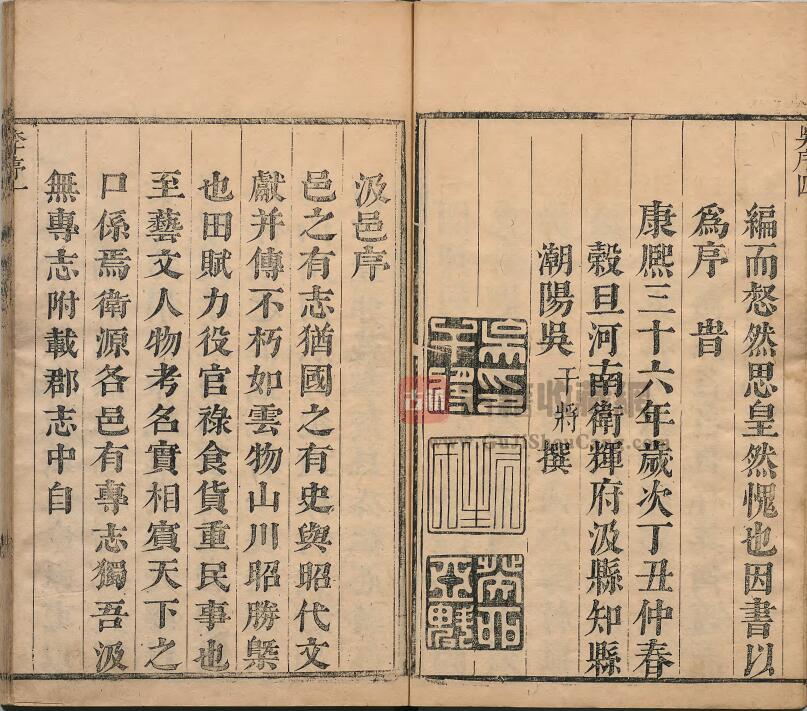 吳序四
編而惄然思皇然愧也因書以
爲序旹
康熙三十六年歲次丁丑仲春
穀旦河南衛輝府汲縣知縣
潮陽吳干將撰
汲邑序
邑之有志猶國之有史與昭代文
獻并傳不朽如雲物山川昭勝槩
也田賦力役官祿食貨重民事也
至藝文人物考名實相賓天下之
口係焉衛源各邑有專志獨吾汲
無專志附載郡志中自
李序一
古籍收藏網
www.GuJiShouCang.com